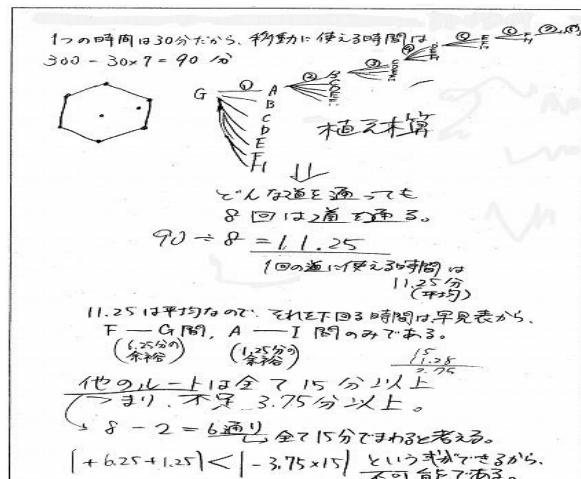 1つの時間は30分だから、移動に使える時間は
300 - 30×7 = 90 分
G ① A
B
C
D
E
F
H
植え木算
どんな道を通っても
8回は道を通る。
90 ÷ 8 = 11.25
1回の道に使える時間は
11.25分
(平均)
11.25は平均なので、それを下回る時間は早見表から、
F — G間, A — I 間のみである。
(6.25分の余裕) (1.25分の余裕)
15
11.25
3.75
他のルートは全て15分以上
つまり、不足 3.75分以上。
8 - 2 = 6通り 全て15分でまわると考える。
|+6.25+1.25| < |-3.75×15| という式ができるから、
不可能である。